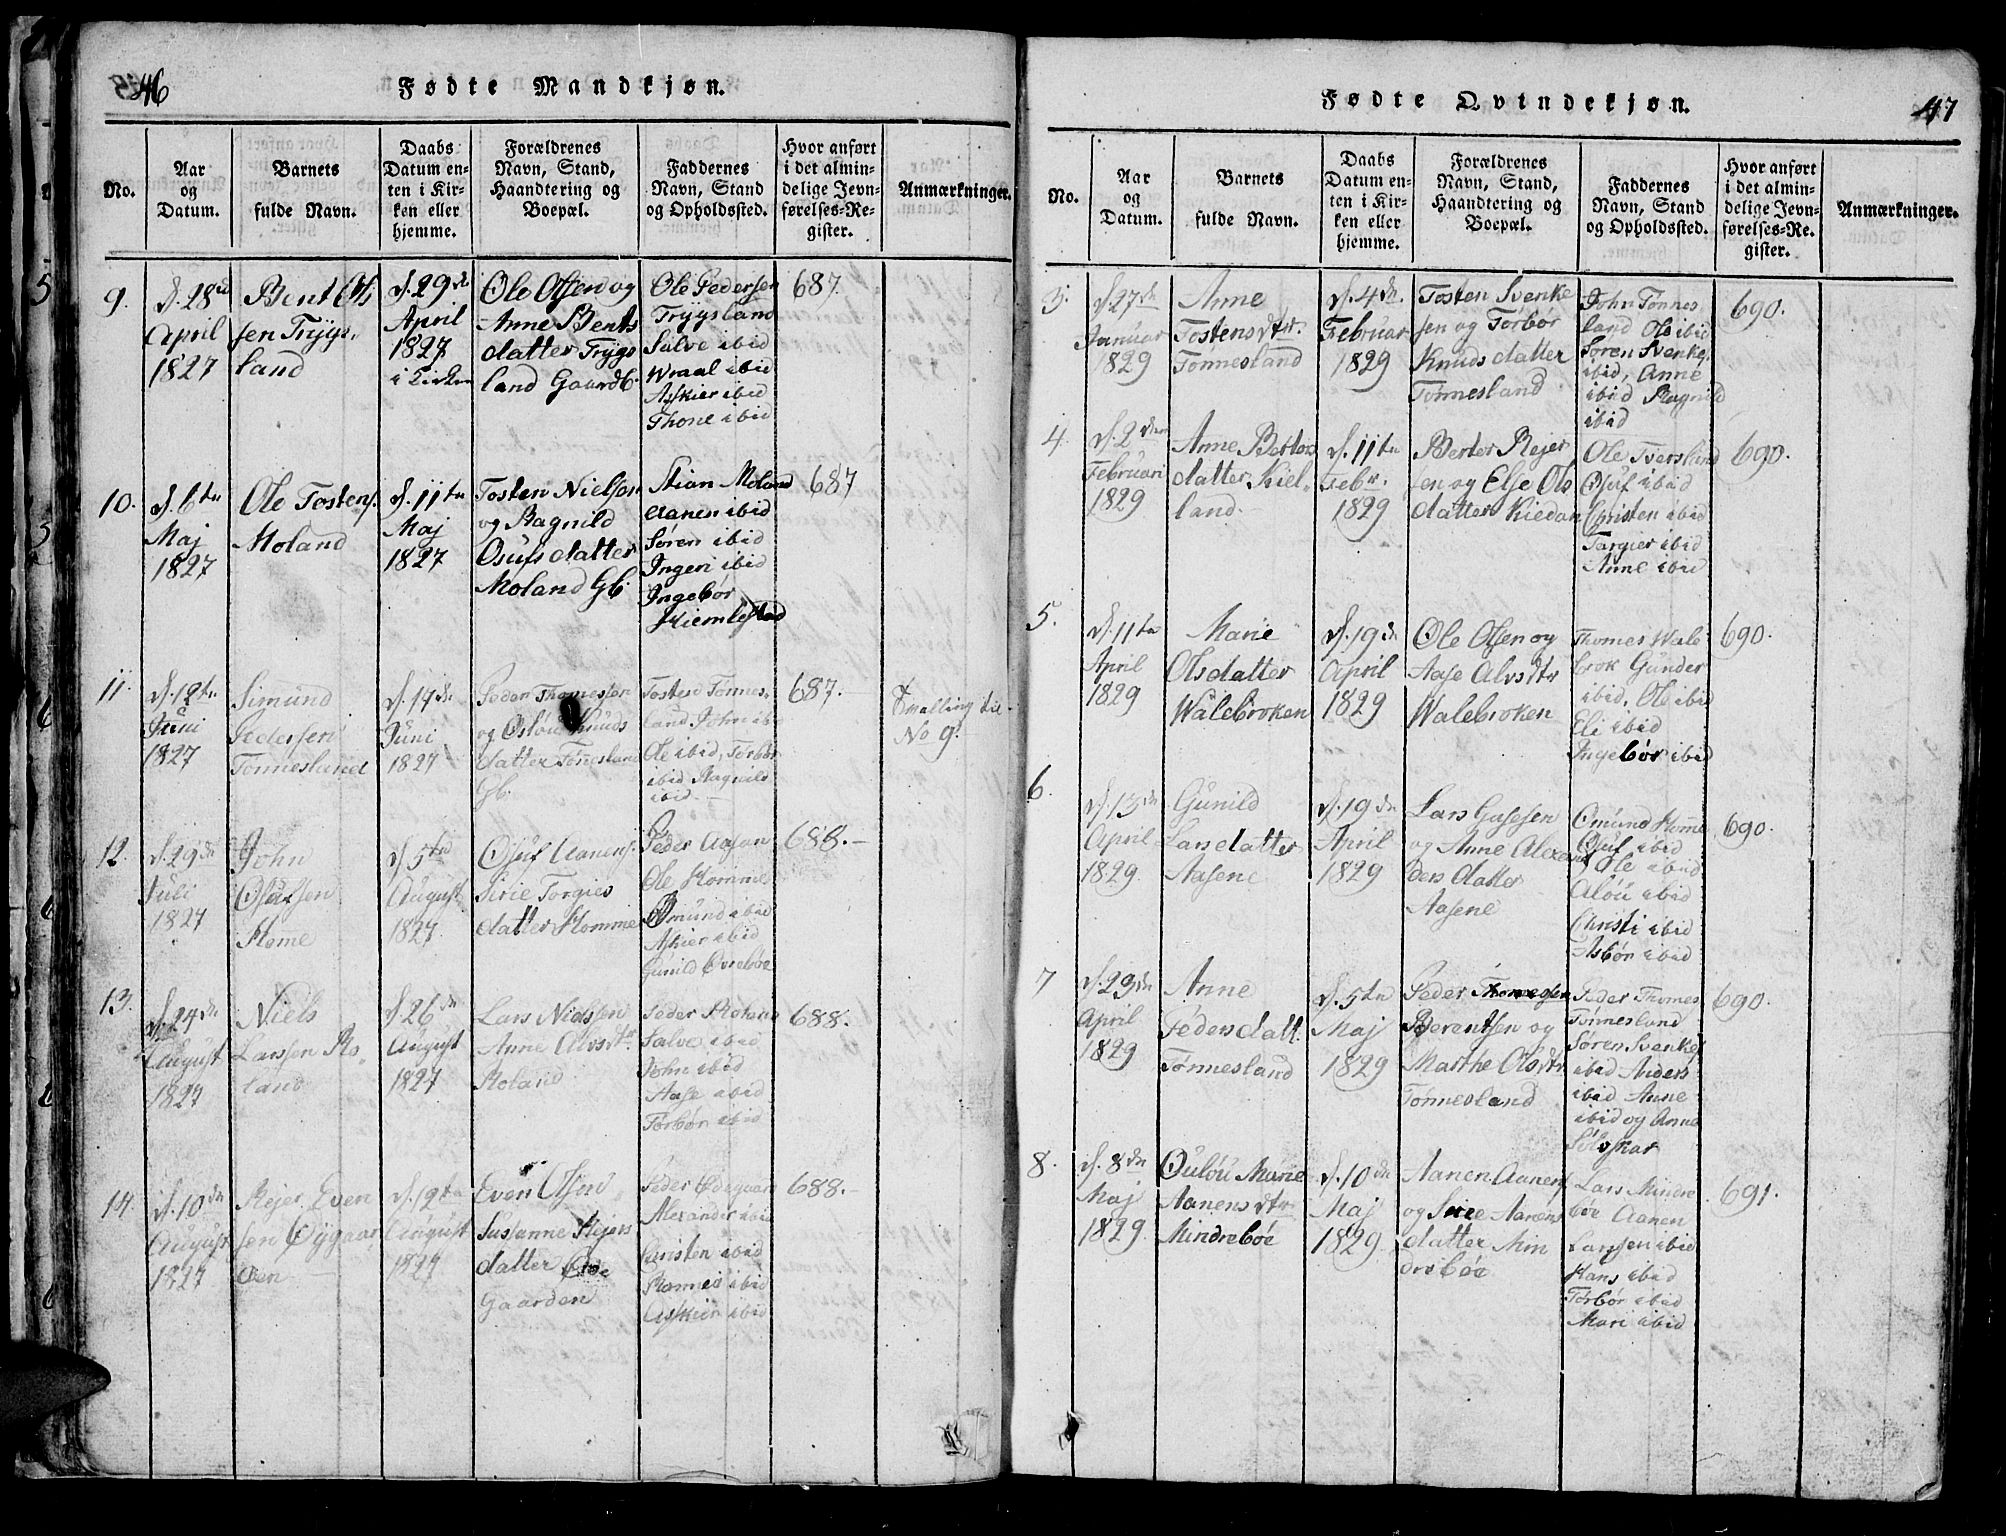 46
Fødte Mandkjøn.
No.
Aar
og
Datum.
Barnets
fulde Navn.
Daabs
Datum en-
ten i Kir-
ken eller
hjemme.
Forældrenes
Navn, Stand,
Haandtering og
Boepæl.
Faddernes
Navn, Stand
og Opholdssted.
Hvor anført
i det almin-
delige Jevn-
førelses-Re-
gister.
Anmærkninger.
9.
d. 28de
April
1827
Bent Ol
sen Trygs
land
d. 29de
April
1827
i Kirken
Ole Olsen og
Anne Bents
datter Trygs
land Gaardb.
Ole Pedersen
Trygsland
Salve ibid
Wraal ibid
Askier ibid
Thone ibid
687.
10.
d. 6te
Maj
1827
Ole Tostens.
Moland
d. 11te
Maj
1827
Tosten Nielsen
og Ragnild
Osufsdatter
Moland Gb.
Stian Moland
Aanen ibid
Søren ibid
Ingeri ibid
Ingebør
687
11.
d. 12te
Juni
1827
Simund
Pedersen
Tønnesland
d. 17de
Juni
1827
Peder Thomessen
og Osløu Knuds
datter Tønnesland
Gb.
Tosten Tønnes
land John ib
Ole ibid, Torbør
ibid Ragnild
ibid
687.
Tvilling til
No 9
12.
d. 29de
Juli
1827
John
Osufsen
Home
d. 5te
August
1827
Osuf Aanens.
Sirie Torgies
datter Homme
Peder Aasan
Ole Homme
Omund ibid
Askier ibid
Gunild Øvrebøe
688.
13.
d. 24de
August
1827
Niels
Larssen Ho
land
d. 26de
August
1827
Lars Nielssen
Anne Alvsdtr
Holand
Peder Holand
Salve ibid
John ibid
Aase ibid
Torbør ibid
688.
14.
d. 10de
August
1827
Rejer Even
sen Øygaar
den
d. 12te
August
1827
Even Olsen
Susanne Rejers
datter
Gaarden
Peder Ødegaar
Alexander ibid
Christen ibid
ibid
Askier ibid
688.
47
Fødte Qvindekjøn.
No.
Aar
og
Datum.
Barnets
fulde Navn.
Daabs
Datum en-
ten i Kir-
ken eller
hjemme.
Forældrenes
Navn, Stand,
Haandtering og
Boepæl.
Faddernes
Navn, Stand
og Opholdssted.
Hvor anført
i det almin-
delige Jevn-
førelses-Re-
gister.
Anmærkninger.
3.
d. 27de
Januar
1829
Anne
Tostensdtr.
Tønnesland
d. 4de
Februar
1829
Tosten Svenke
sen og Torbør
Knudsdatter
Tønnesland
John Tønnes
land Ole ibid
Søren Svenke
ibid, Anne
ibid Ragnild
ibid
690.
4.
d. 2den
Februari
1829
Anne Berters
datter Kiel
land
d. 11te
Febr.
1829
Berter Rejer
sen og Else Ols
datter
Ole Tversland
Osuf ibid
Christen ibid
Targier ibid
Anne ibid
690.
5.
d. 11te
April
1829
Marie
Olsdatter
Walebroken
d. 19de
April
1829
Ole Olsen og
Aase Alvsdtr
Walebroken
Thomes Wale
brok Gunder
ibid, Ole ibid
Eli ibid
Ingebør ibid
690.
6.
d. 13de
April
1829
Gunild
Larsdatter
Aasene
d. 19de
April
1829
Lars Gassen
og Anne Alexan
ders datter
Aasene
Omund Home
Osuf ibid
Ole ibid
Aløu ibid
Christi ibid
Asbør ibid
690.
7
d. 29de
April
1829
Anne
Pedersdatt.
Tønnesland
d. 5te
Maj
1829
Peder Thomessen
Berentsen og
Marthe Olsdtr
Tønnesland
Peder Thomes
Tønnesland
Søren Svenke
ibid Anders
ibid Anne
ibid og Anne
690.
8.
d. 8de
Maj
1829
Ouløu Marie
Aanensdtr
Mindrebøe
d. 10de
Maj
1829
Aanen Aanens
og Sirie Aanens
datter Min
drebøe
Lars Mindre
bøe Aanen
Larssen ibid
Hans ibid
Torbør ibid
Mari ibid
691.